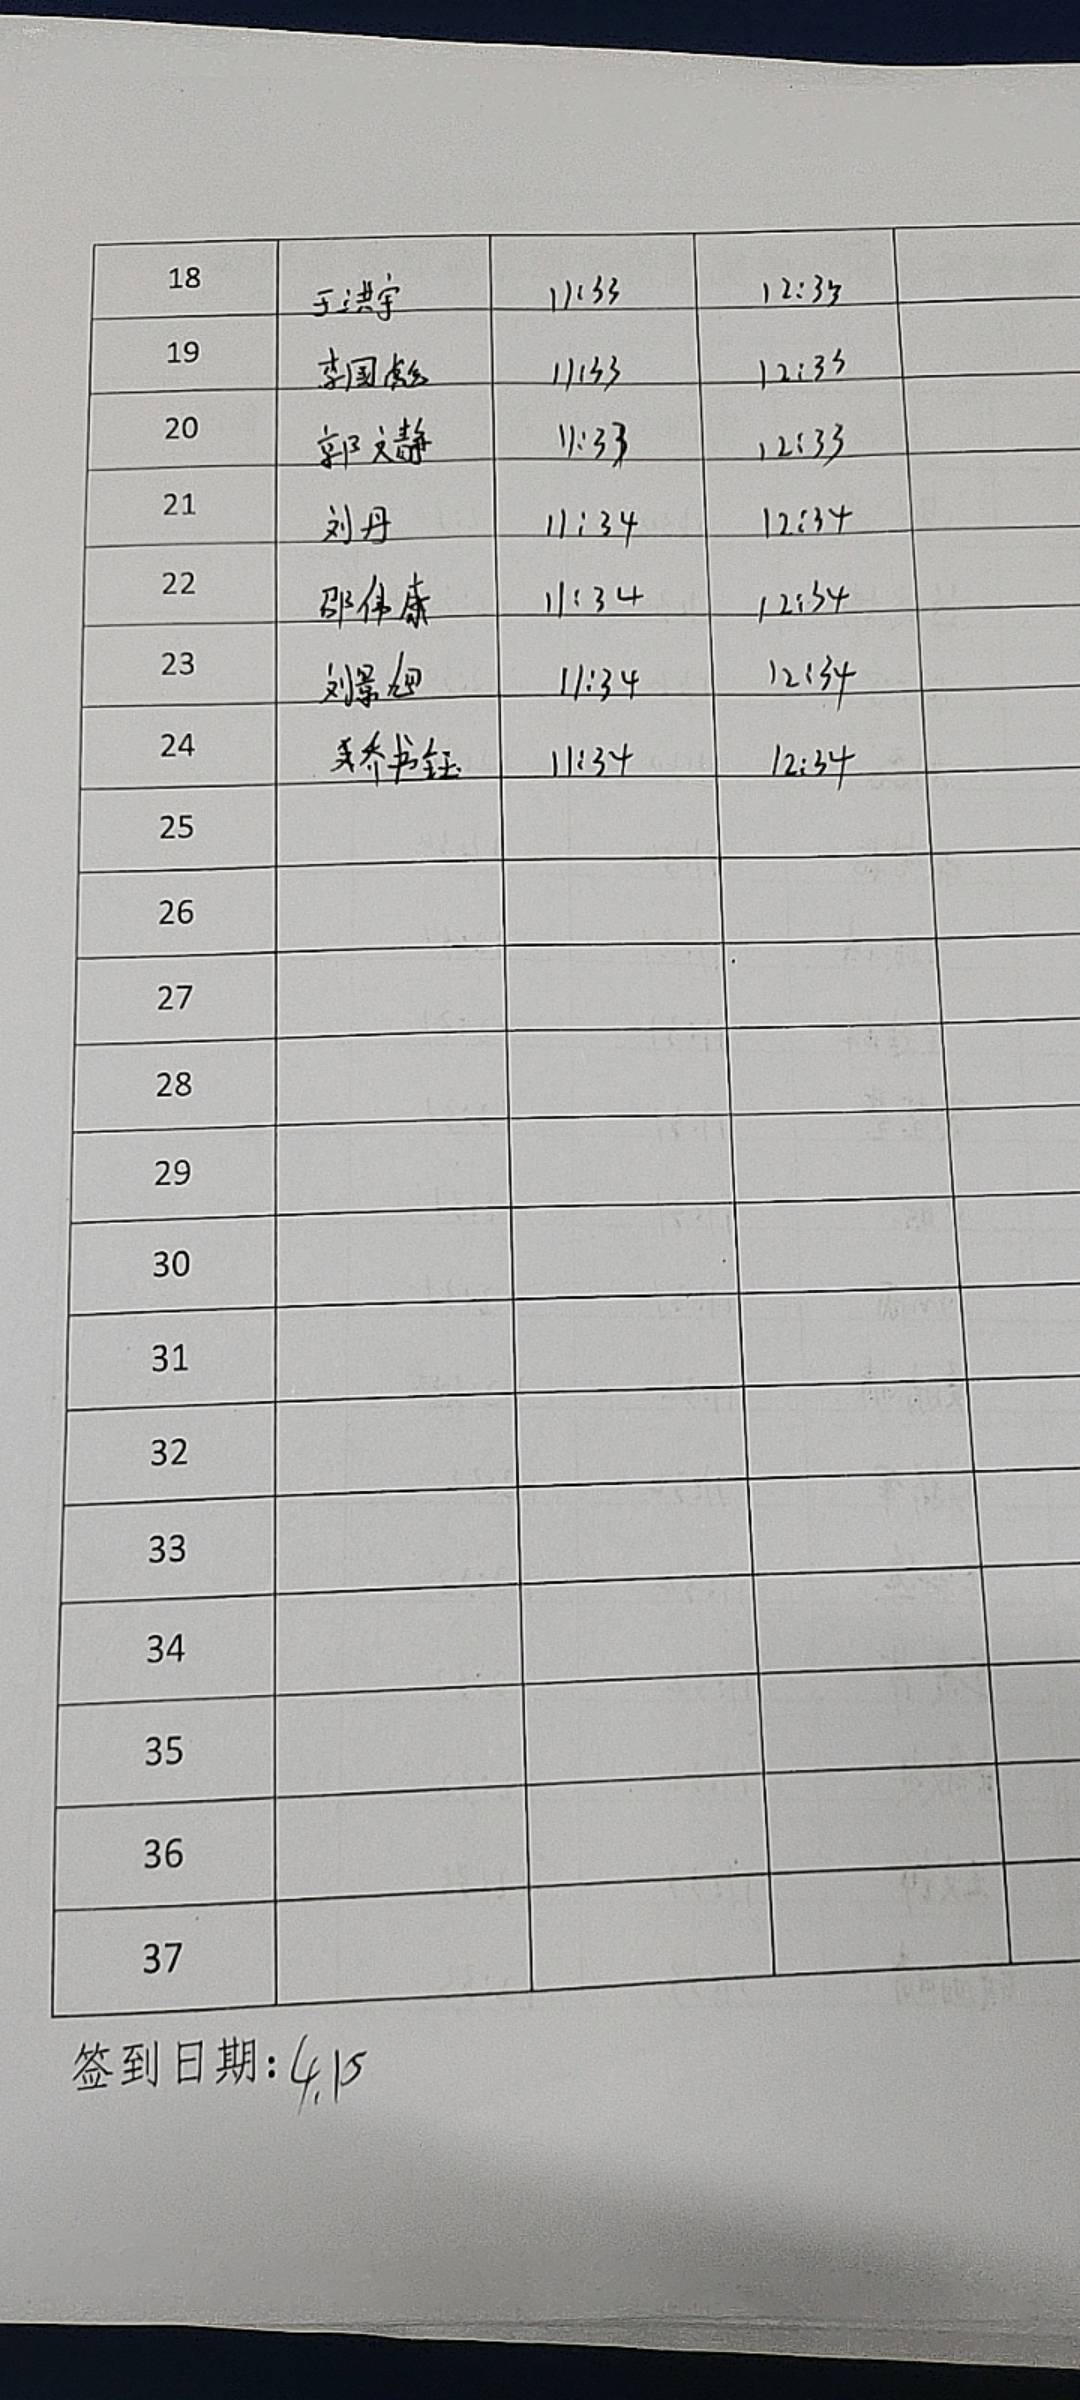 18 于洪宇 11:33 12:33
19 李国彪 11:33 12:33
20 郭文静 11:33 12:33
21 刘丹 11:34 12:34
22 邵伟康 11:34 12:34
23 刘景旭 11:34 12:34
24 乔书钰 11:34 12:34
25
26
27
28
29
30
31
32
33
34
35
36
37
签到日期:4.15